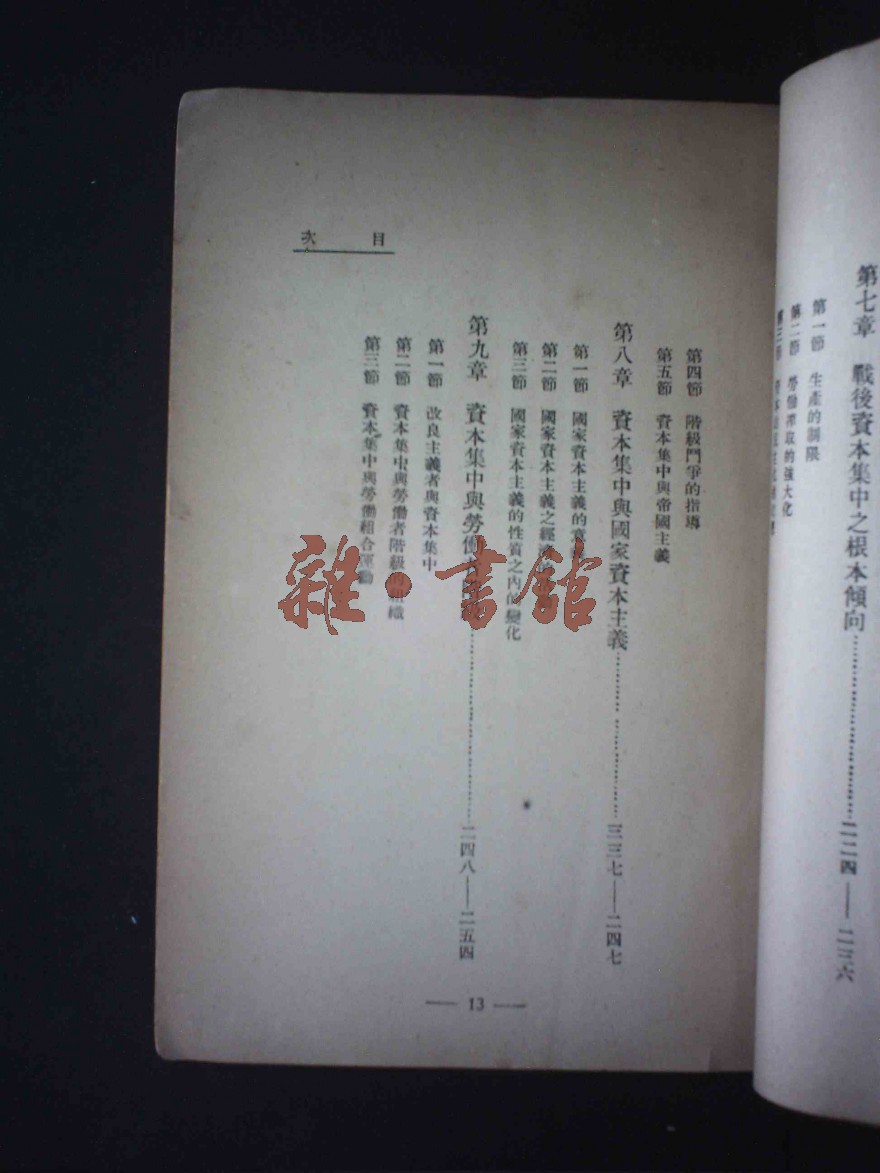 第七章 戰後資本集中之根本傾向……二二四——二三六
第一節 生產的制限
第二節 勞働搾取的強大化
第三節 資本
目次
第四節 階級鬥爭的指導
第五節 資本集中與帝國主義
第八章 資本集中與國家資本主義……三三七——二四七
第一節 國家資本主義的意
第二節 國家資本主義之經濟
第三節 國家資本主義的性質之內的變化
第九章 資本集中與勞働……二四八——二五四
第一節 改良主義者與資本集中
第二節 資本集中與勞働者階級的組織
第三節 資本集中與勞働組合運動
— 13 —
雜·書館